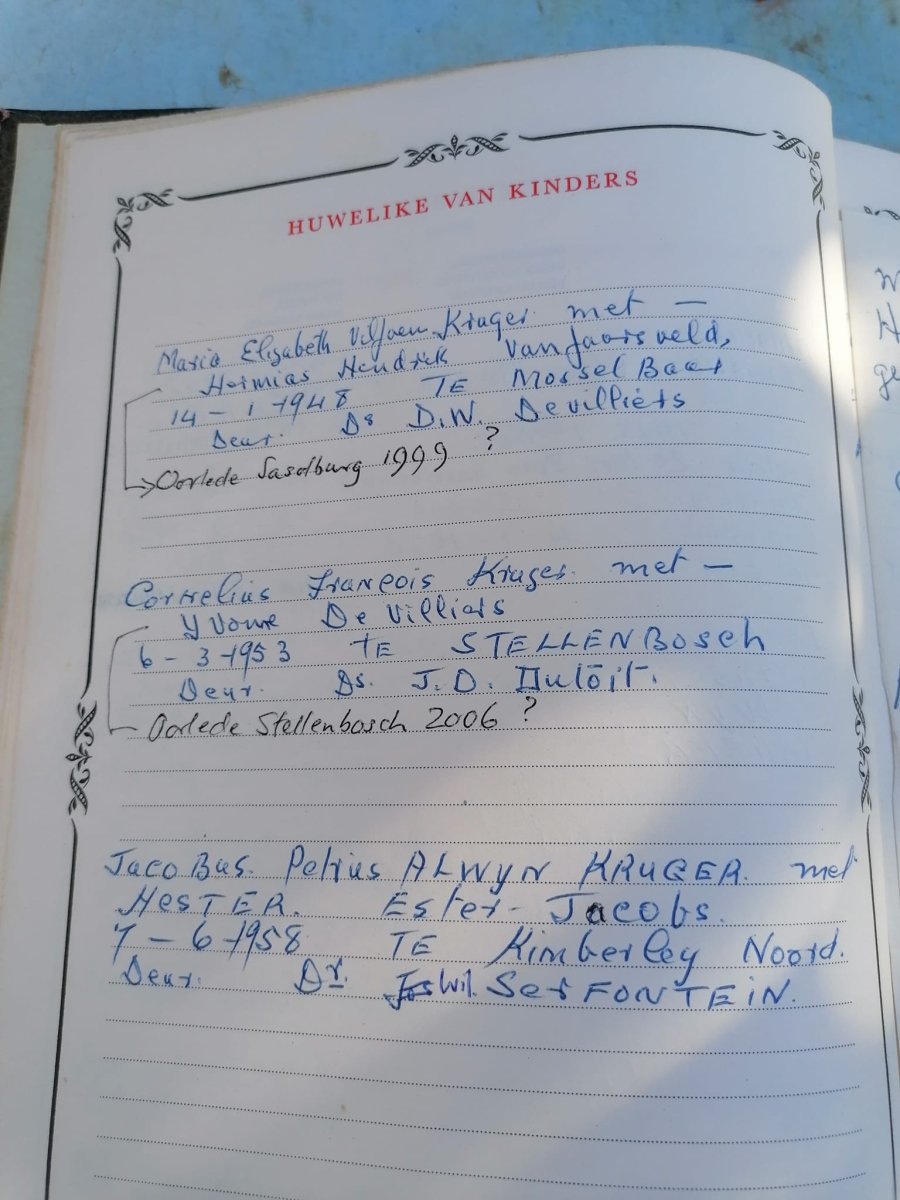 HUWELIKE VAN KINDERS
Maria Elizabeth Viljoen Kruger met —
Hermias Hendrik Van Jaarsveld,
14 - 1 - 1948 TE Mossel Baai
Deur. Ds D.W. De villiers
Oorlede Sasolburg 1999 ?
Cornelius Francois Kruger. met —
Yvonne De Villiers
6 - 3 - 1953 TE STELLENBosch
Deur. Ds. J.D. Dutoit.
Oorlede Stellenbosch 2006 ?
JacoBus. Petrus ALWYN KRUGER. met
HESTER. Ester - Jacobs.
7 - 6 - 1958 TE Kimberley Noord.
Deur. Dr. Wil. SerFONTEiN.
W
H
ge